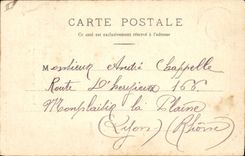 CARTE POSTALE
Ce côté est exclusivement réservé à l'adresse
Monsieur André Chappelle
Route D'heyrieux 168
Monplaisir la Plaine
Lyon (Rhône)